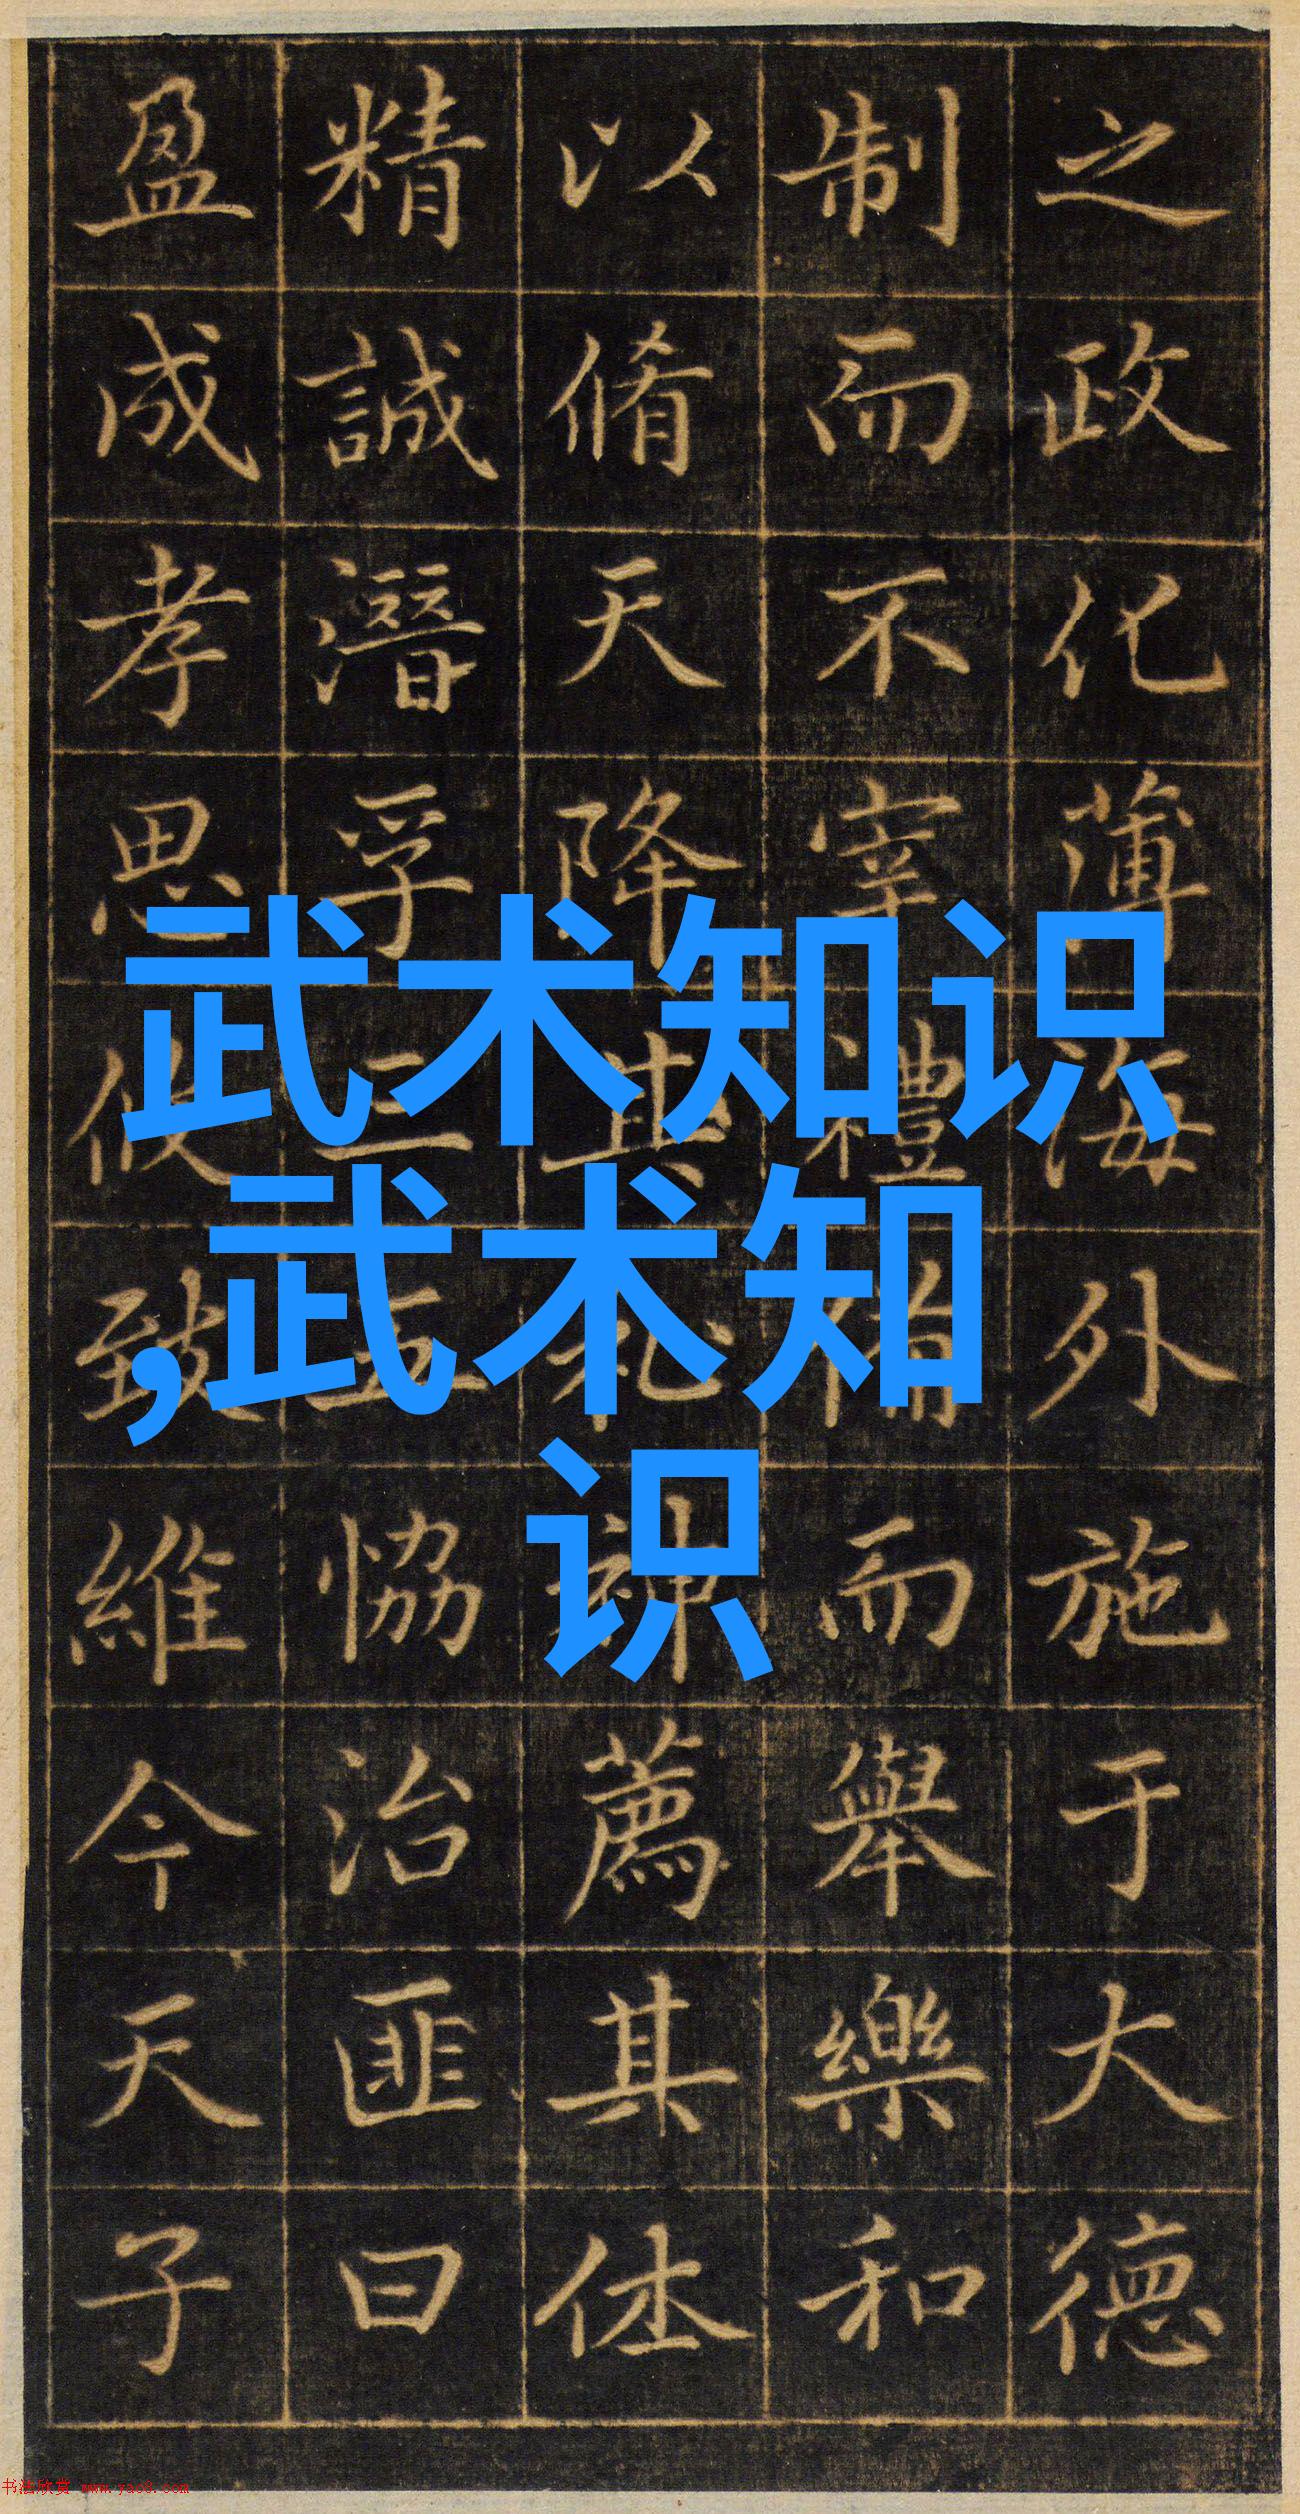 之政化薄海外施于大德
制而不宰禮備而舉樂和
以脩天降其神薦其休
精誠潛孚三五恊治匪曰
盈成孝思攸致維今天子
武术知识
,武术知
识
书法欣赏 www.yac8.com